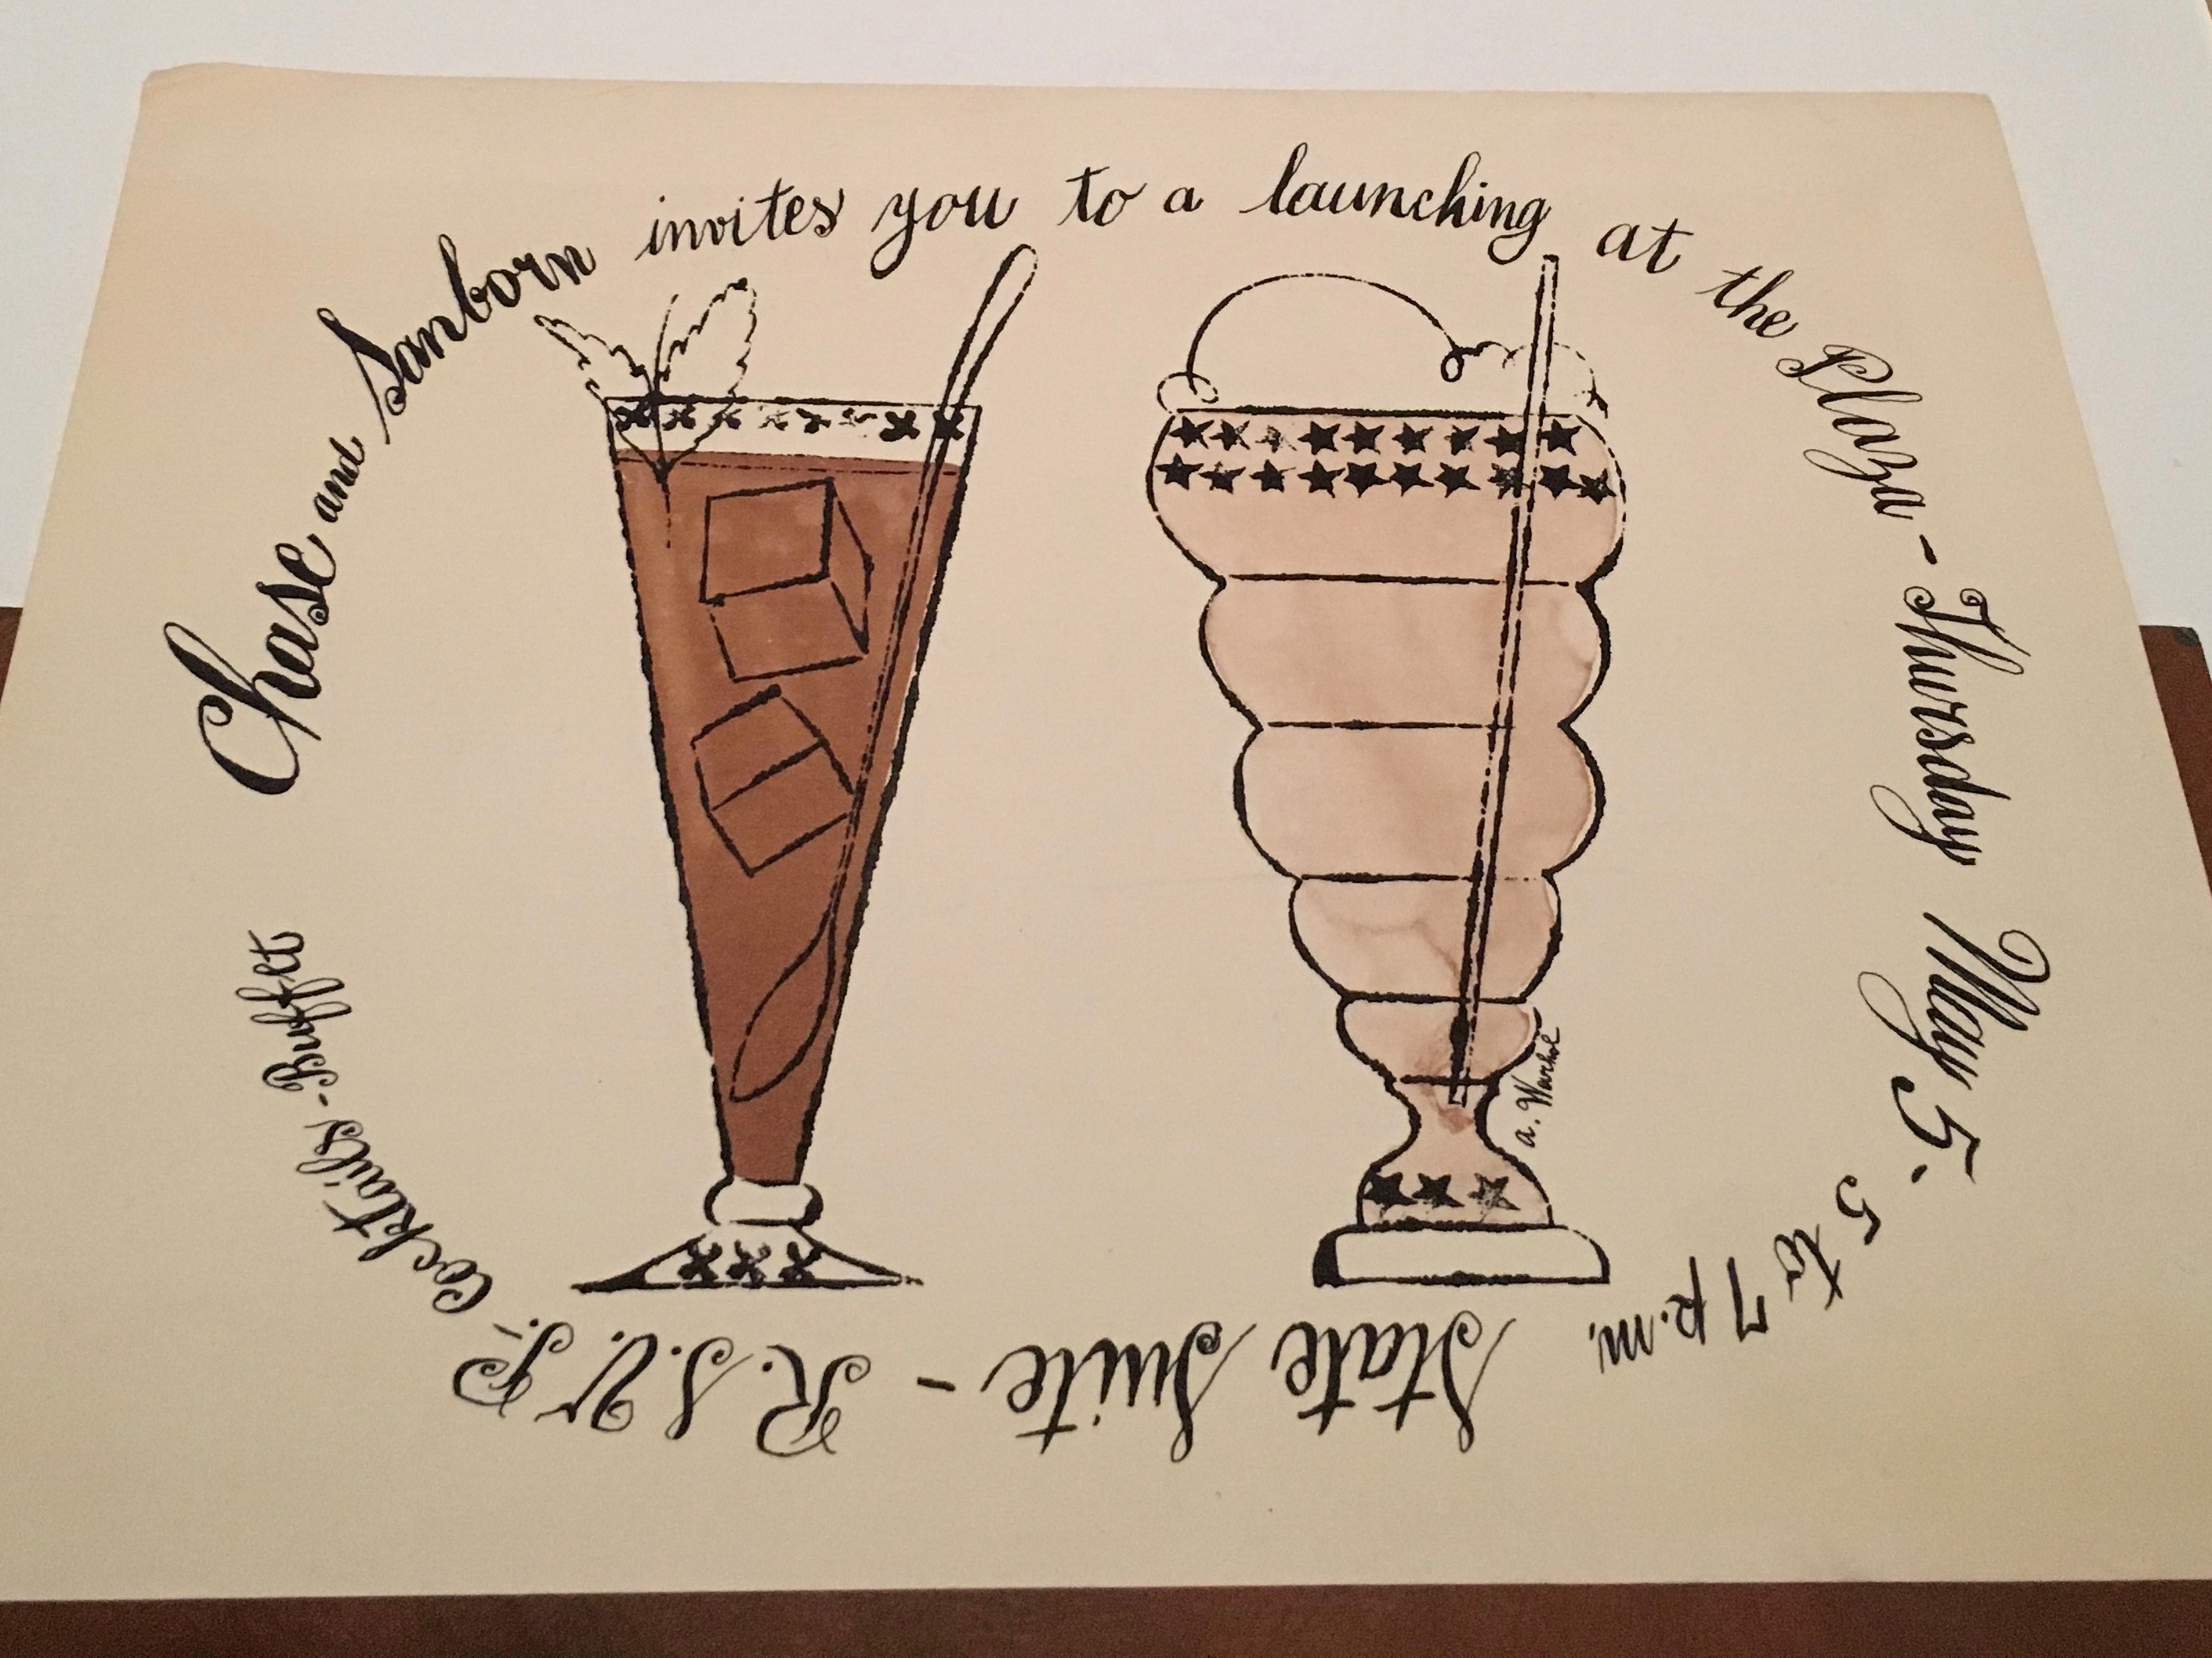 Chase and Sanborn invites you to a launching at the Plaza - Thursday May 5 - 5 to 7 p.m. State Suite - R.S.V.P. - Cocktails - Buffet
a. Warhol